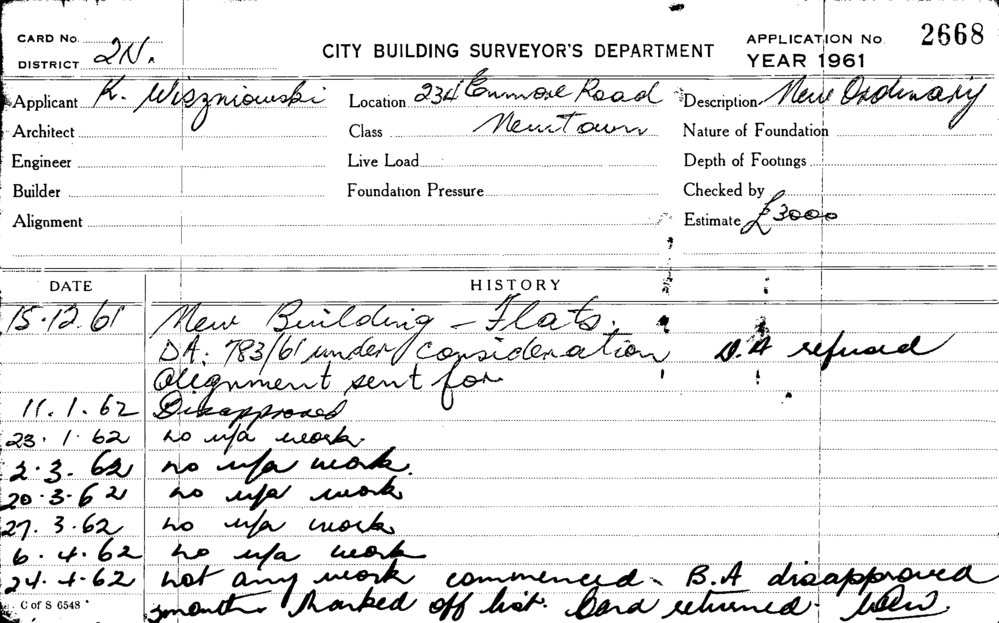 CARD No.
DISTRICT 2N.
CITY BUILDING SURVEYOR'S DEPARTMENT
APPLICATION No. 2668
YEAR 1961
Applicant K. Wiszniowski Location 234 Enmore Road Description New Ordinary
Architect Class Newtown Nature of Foundation
Engineer Live Load Depth of Footings
Builder Foundation Pressure Checked by
Alignment Estimate £3000
DATE HISTORY
15.12.61 New Building - Flats.
DA. 783/61 under consideration D.A refused
Alignment sent for
11.1.62 Disapproved
23.1.62 no u/a work.
2.3.62 no u/a work.
20.3.62 no u/a work
27.3.62 no u/a work
6.4.62 no u/a work
24.4.62 not any work commenced - B.A disapproved
C of S 6548 3 months. Marked off list. Card returned.